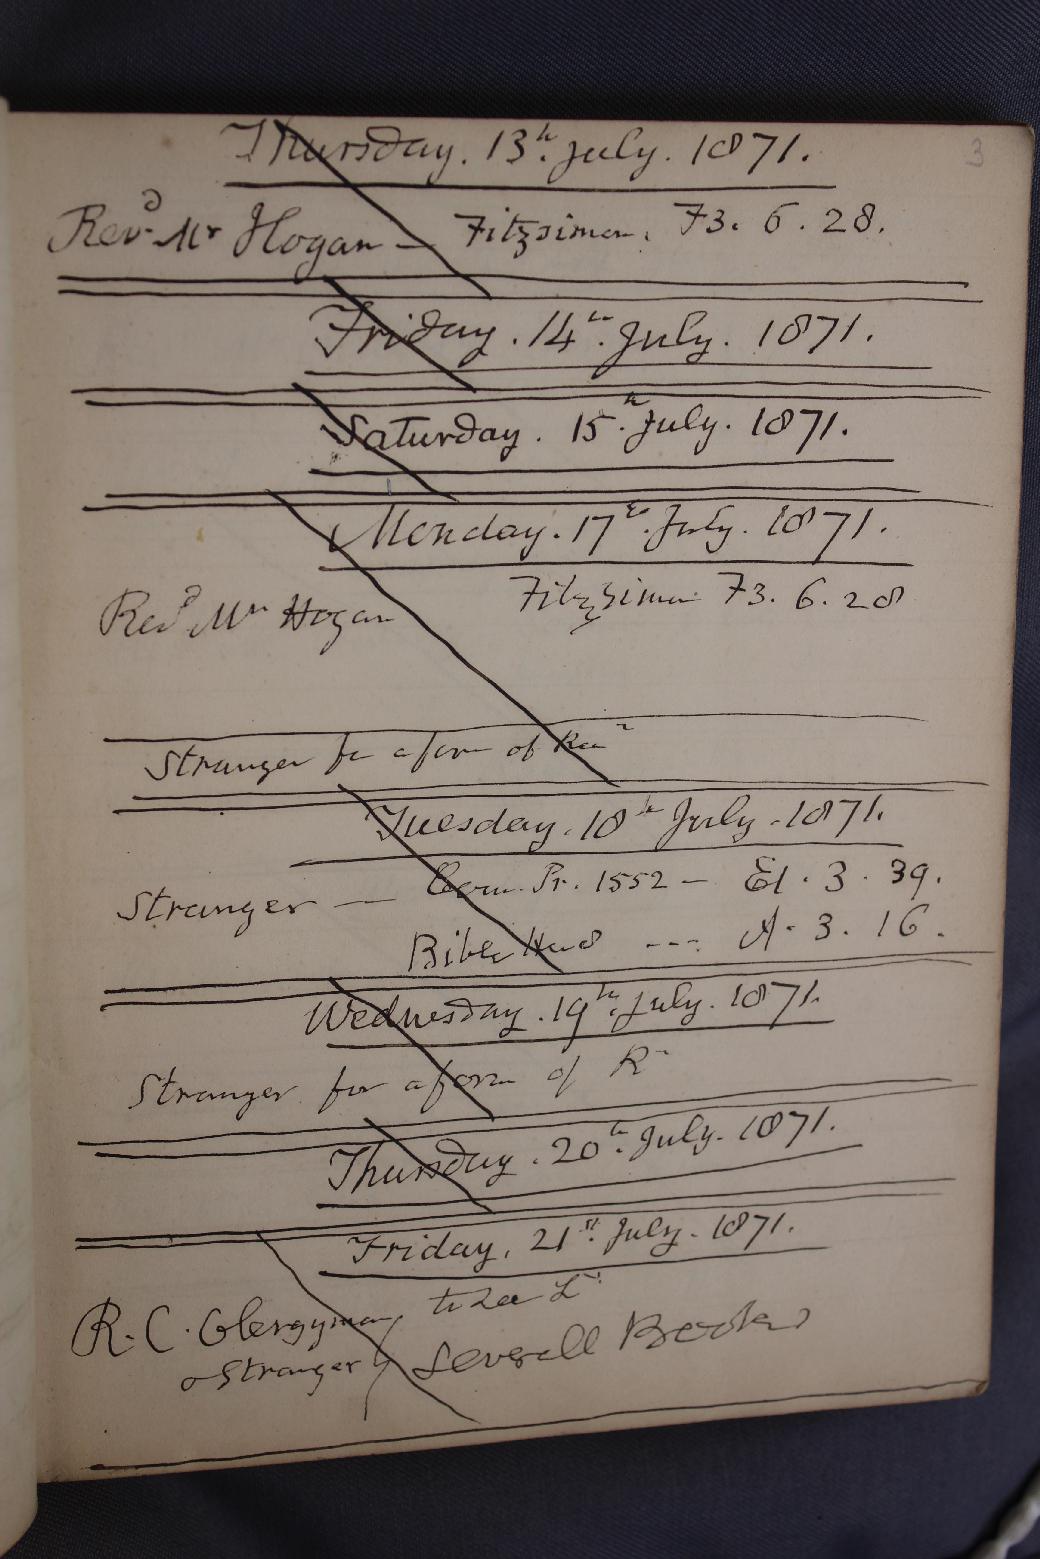 3
Thursday. 13th. July. 1871.
Revd. Mr Hogan — Fitzsimon. F3. 6. 28.
Friday. 14th. July. 1871.
Saturday. 15th. July. 1871.
Monday. 17th. July. 1871.
Revd Mr Hogan Fitzsimon F3. 6. 28
Stranger for a form of
Tuesday. 18th July. 1871.
Stranger — Com. Pr. 1552 — El. 3. 39.
Bible --- A. 3. 16.
Wednesday. 19th. July. 1871.
Stranger for a form of R
Thursday. 20th. July. 1871.
Friday. 21st. July. 1871.
R. C. Clergyman to see L
a Stranger Severall Books